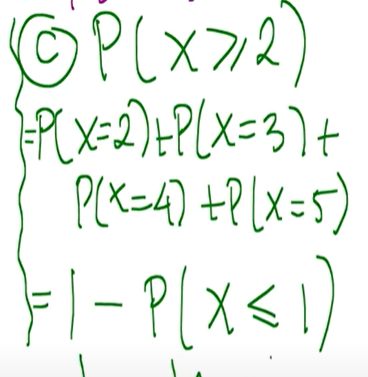 Ⓒ P(X⩾2)
=P(X=2)+P(X=3)+
P(X=4)+P(X=5)
=1-P(X≤1)